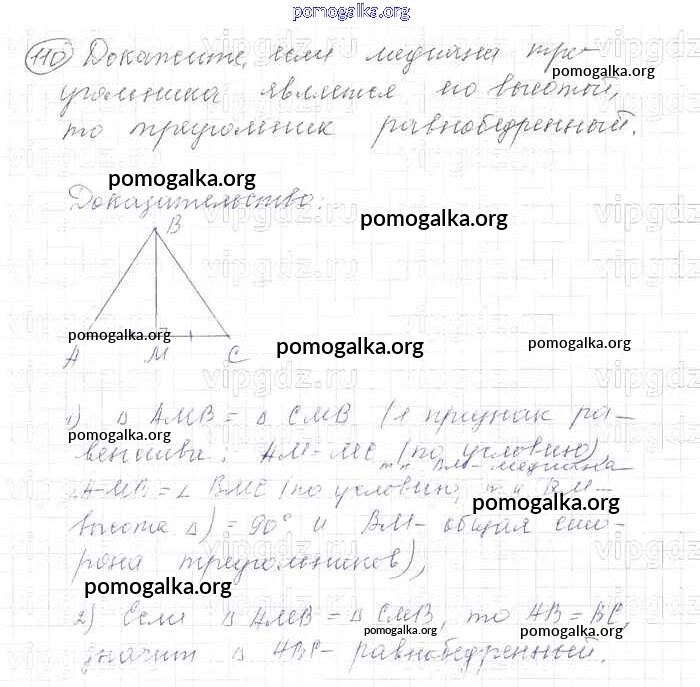 pomogalka.org
110 Докажите, если медиана тре-
pomogalka.org
угольника является его высотой,
то треугольник равнобедренный.
pomogalka.org
Доказательство:
pomogalka.org
B
pomogalka.org
pomogalka.org
pomogalka.org
A M C
1) Δ AMB = Δ CMB (1 признак ра-
pomogalka.org
венства: AM = MC (по условию,
т.к. BM - медиана
∠AMB = ∠ BMC (по условию, т.к. BM -
pomogalka.org
высота Δ) = 90° и BM - общая сто-
рона треугольников),
pomogalka.org
2) Если Δ AMB = Δ CMB, то AB = BC,
pomogalka.org
pomogalka.org
значит Δ ABC - равнобедренный.